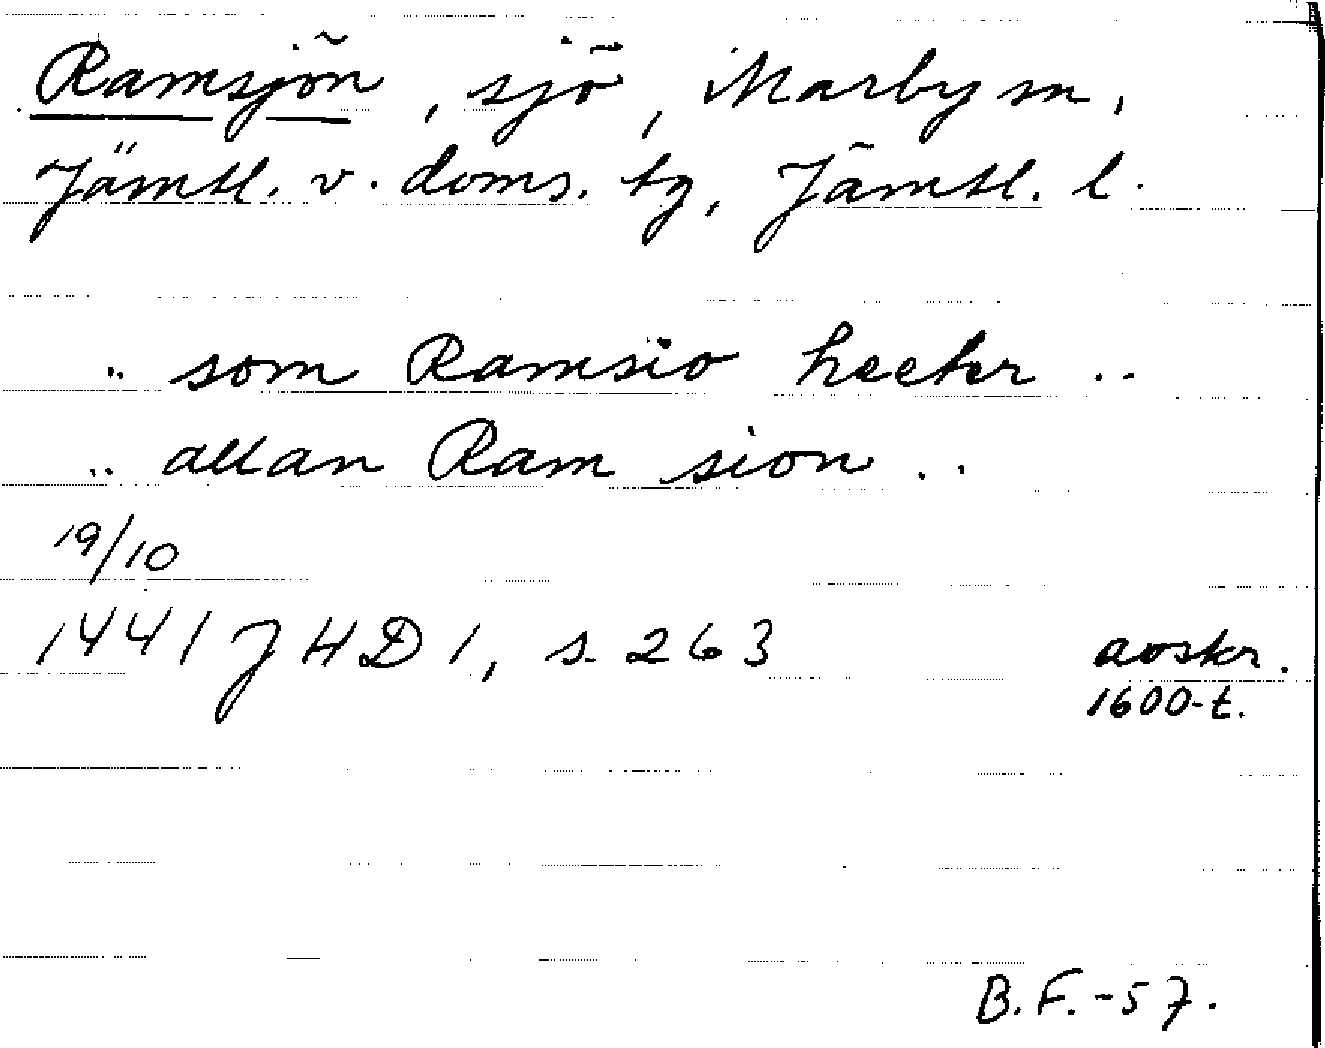 Ramsjön, sjö, Marby sn,
Jämtl. v. doms. tg, Jämtl. l.
.. som Ramsio heeter ..
.. allan Ram sion ..
19/10
1441 JHD 1, s. 263
avskr.
1600-t.
B.F.-57.